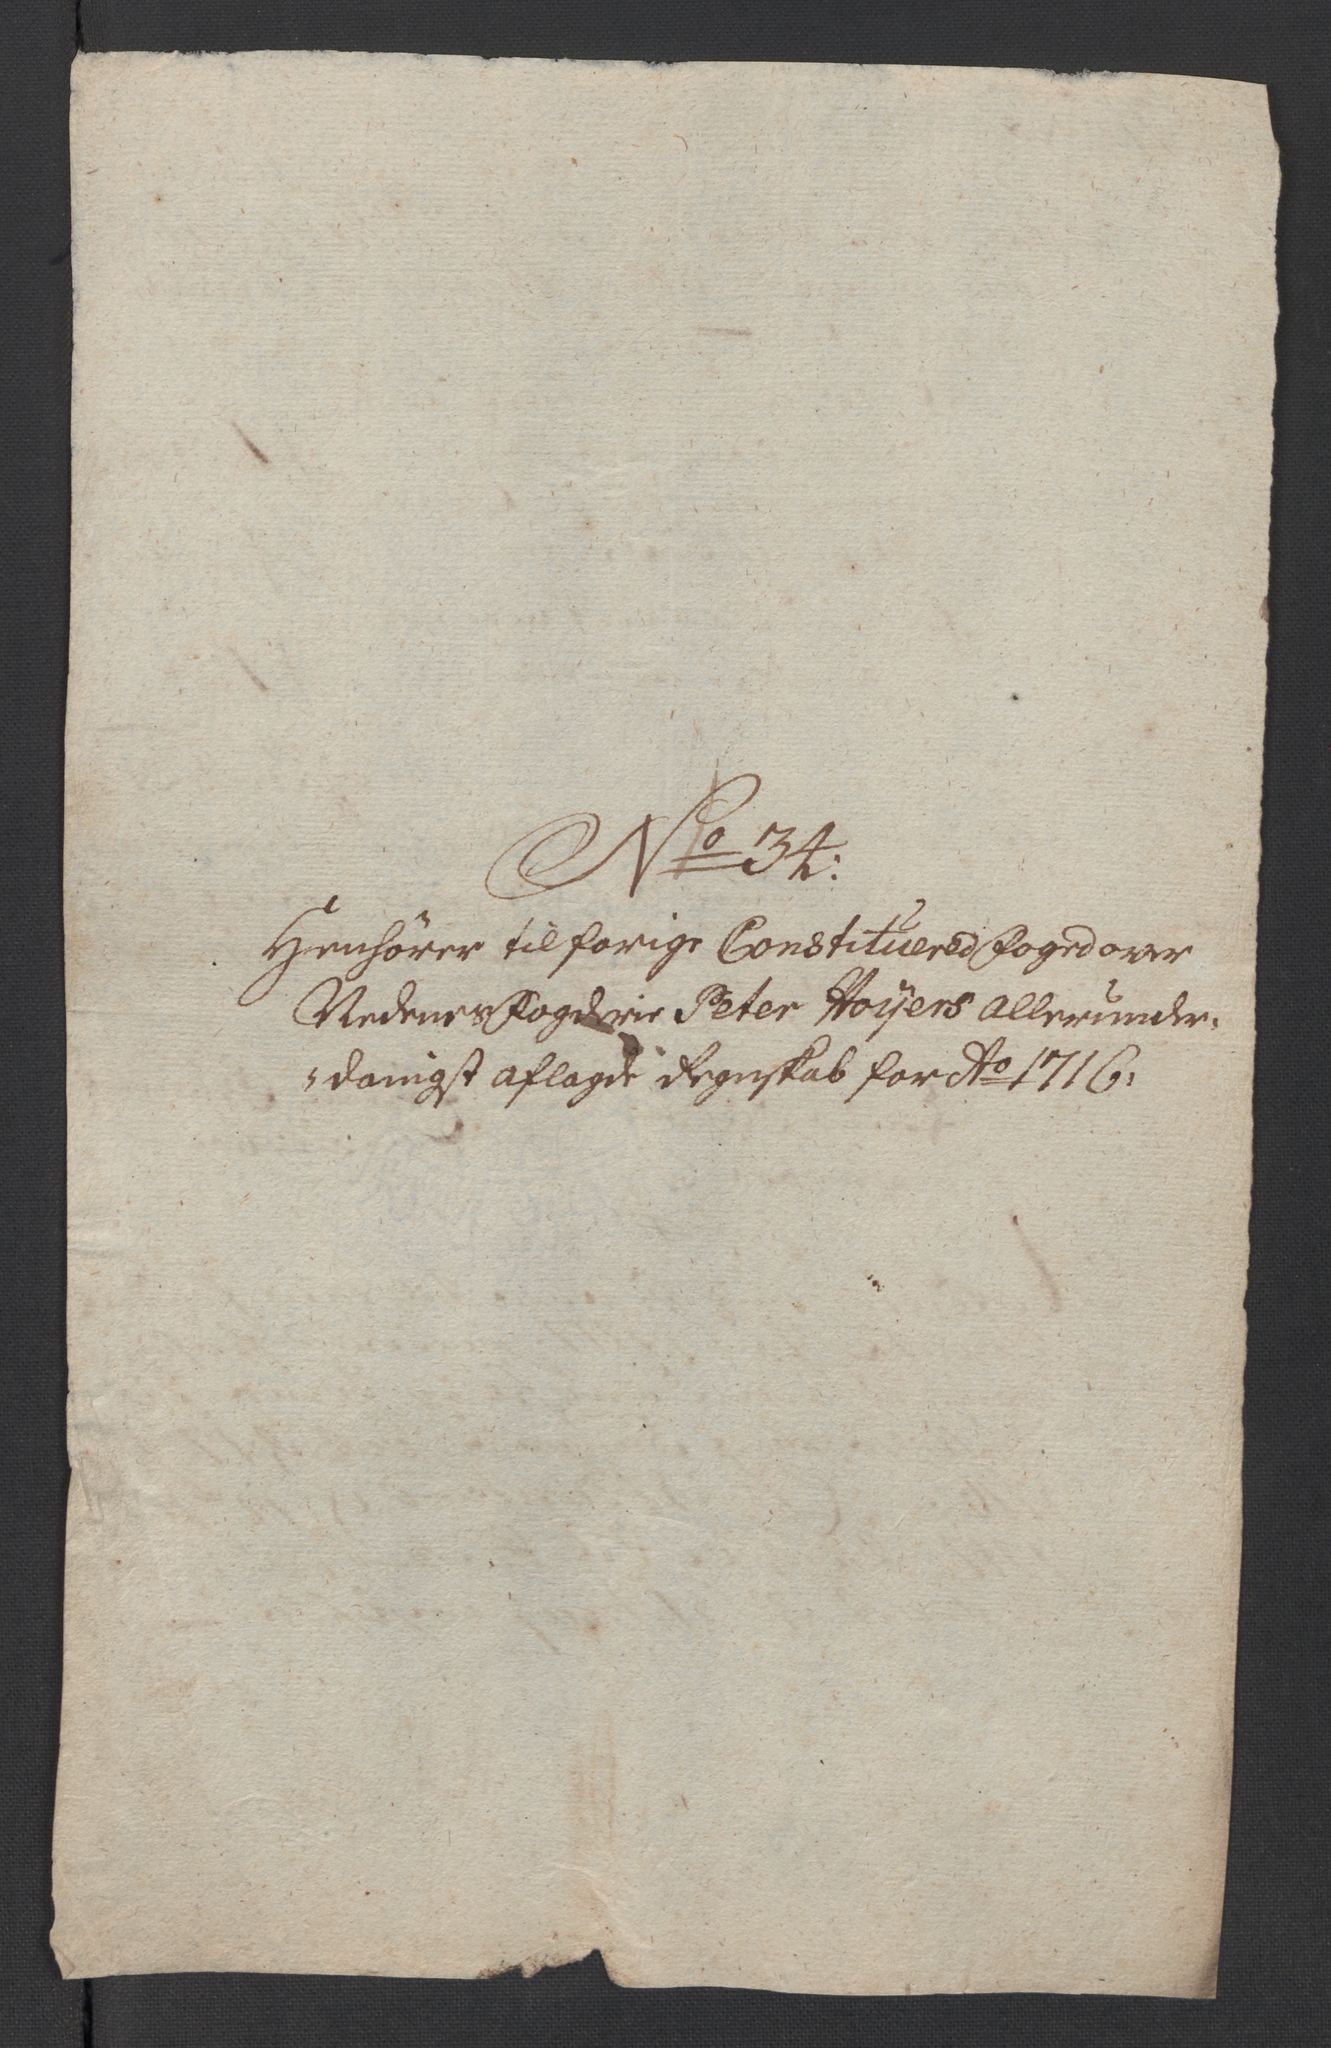 No 34:
Henhörer til forige Constituered Foged over
Nedenes Fogderie Peter Hoÿers Allerunder-
-danigst aflagde Regnskab for Ao 1716: